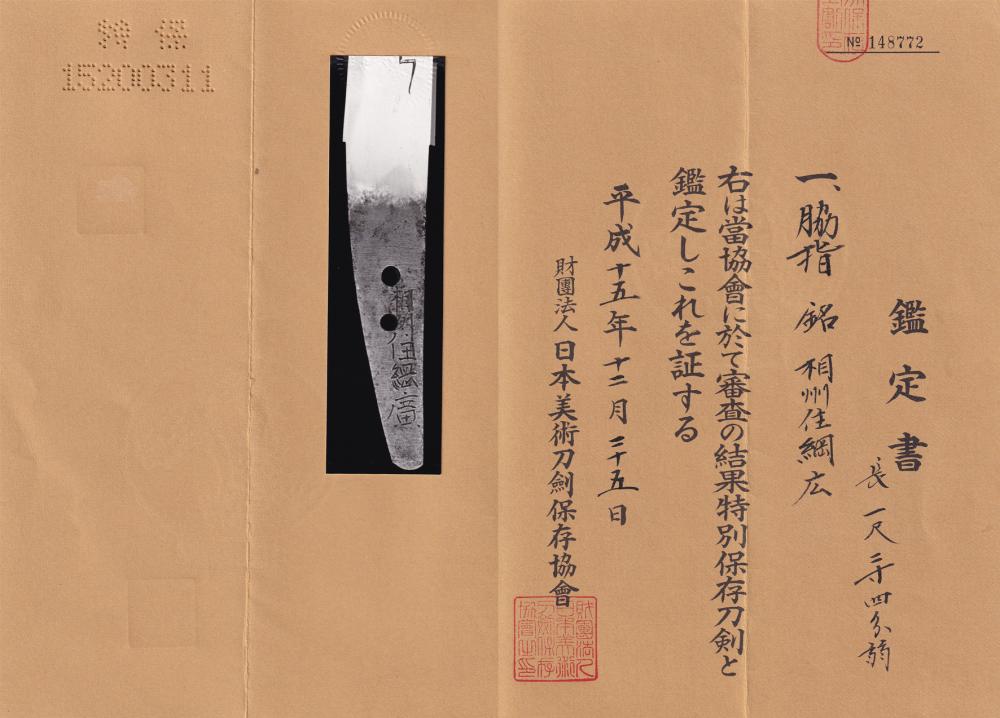 № 148772
鑑定書
長一尺三寸四分弱
一、脇指 銘 相州住綱広
右は當協會に於て審査の結果特別保存刀剣と
鑑定しこれを証する
平成十五年十二月二十五日
財團法人日本美術刀劍保存協會
相州住綱廣
特保
15200311